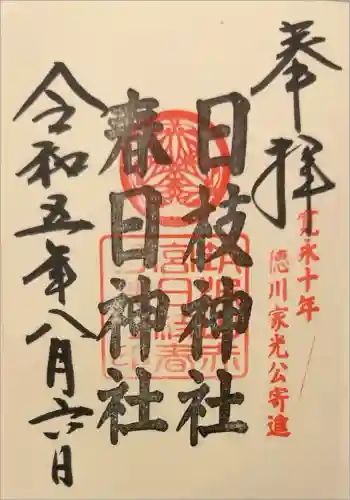 奉拝
寛永十年
徳川家光公寄進
日枝神社
春日神社
令和五年八月六日